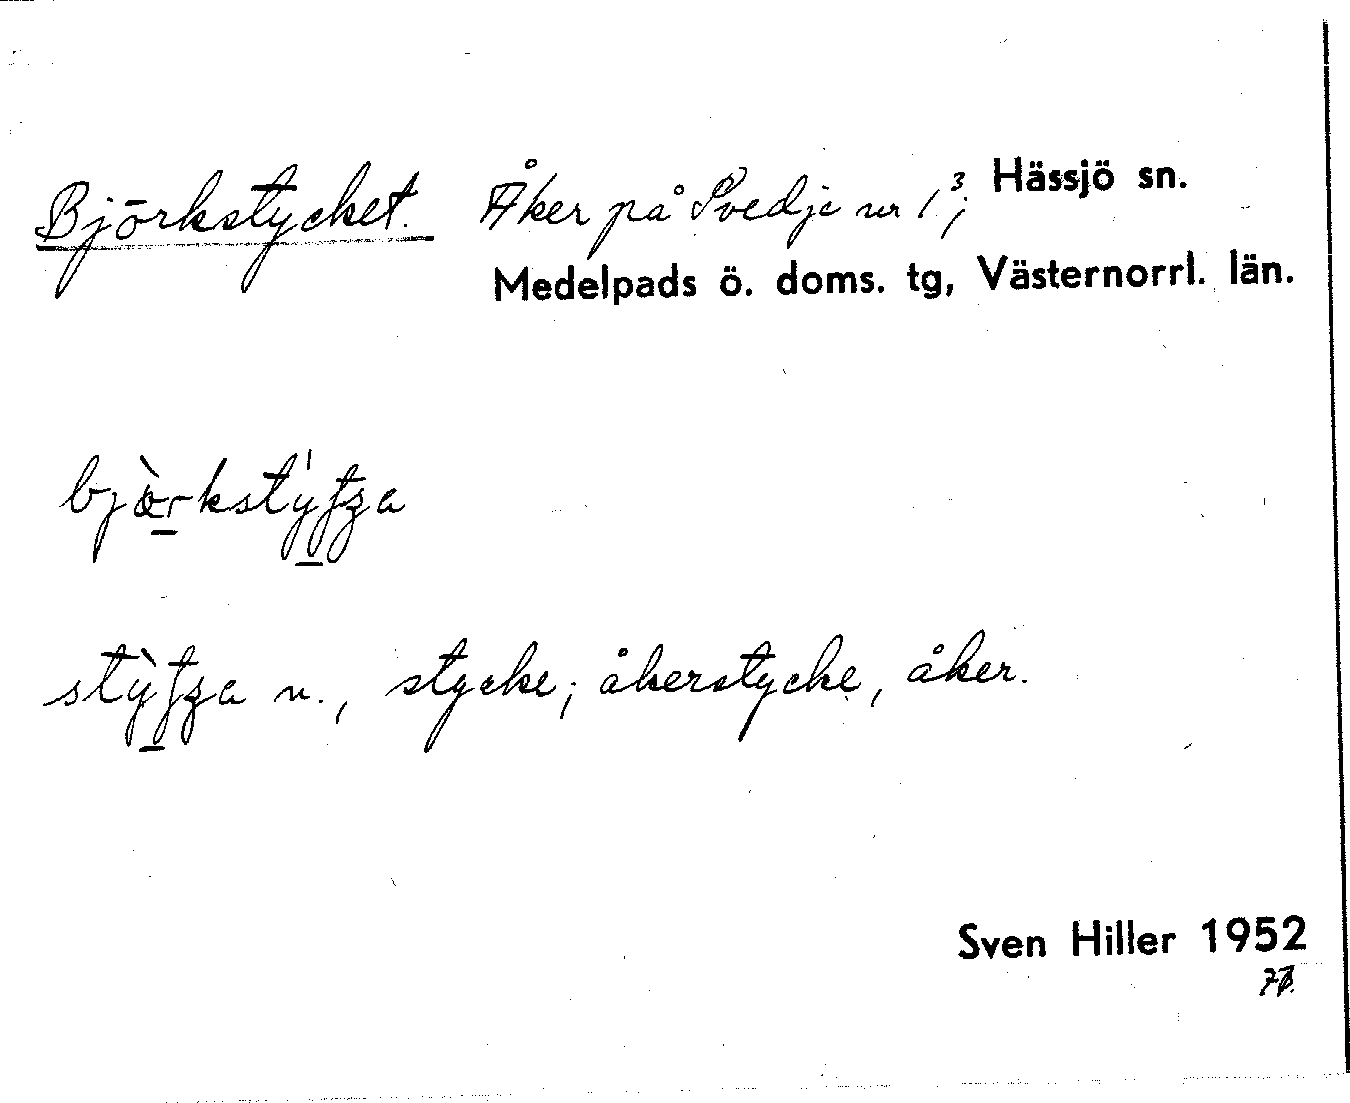 Björkstycket. Åker på Svedje nr 1³; Hässjö sn.
Medelpads ö. doms. tg, Västernorrl. län.
stycke; åkerstycke, åker.
Sven Hiller 1952